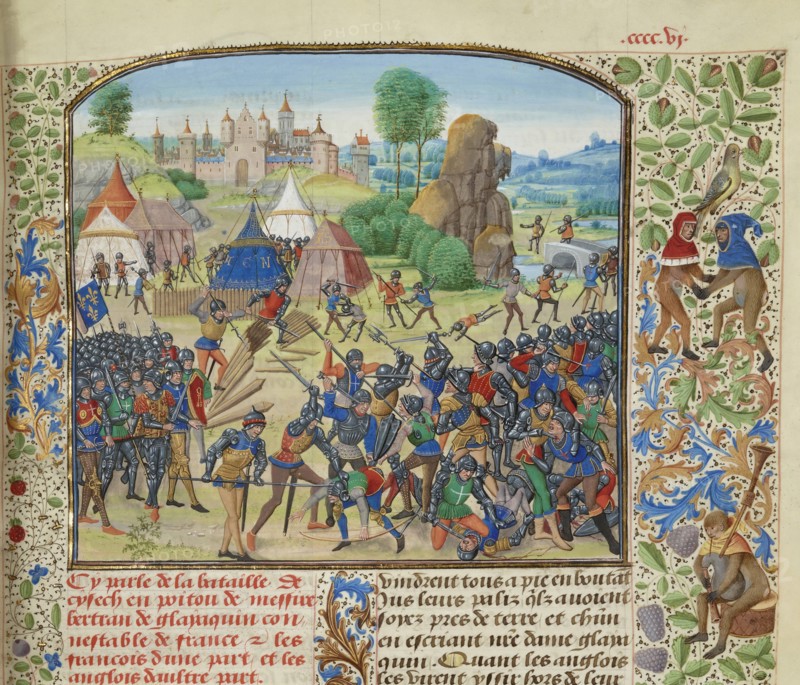 .cccc.vj.
Cy parle de la bataille de
cysech en poitou de messire
bertran de glayaquin con
nestable de france 2 les
francois dune part et les
anglois daultre part.
Vindrent tous a pie en boutāt
ius leurs paliz qlz auoient
soyez pres de terre et chūn
en escriant nr̄e dame glayā
quin. Quant les anglois
les virent yssir hors de leur